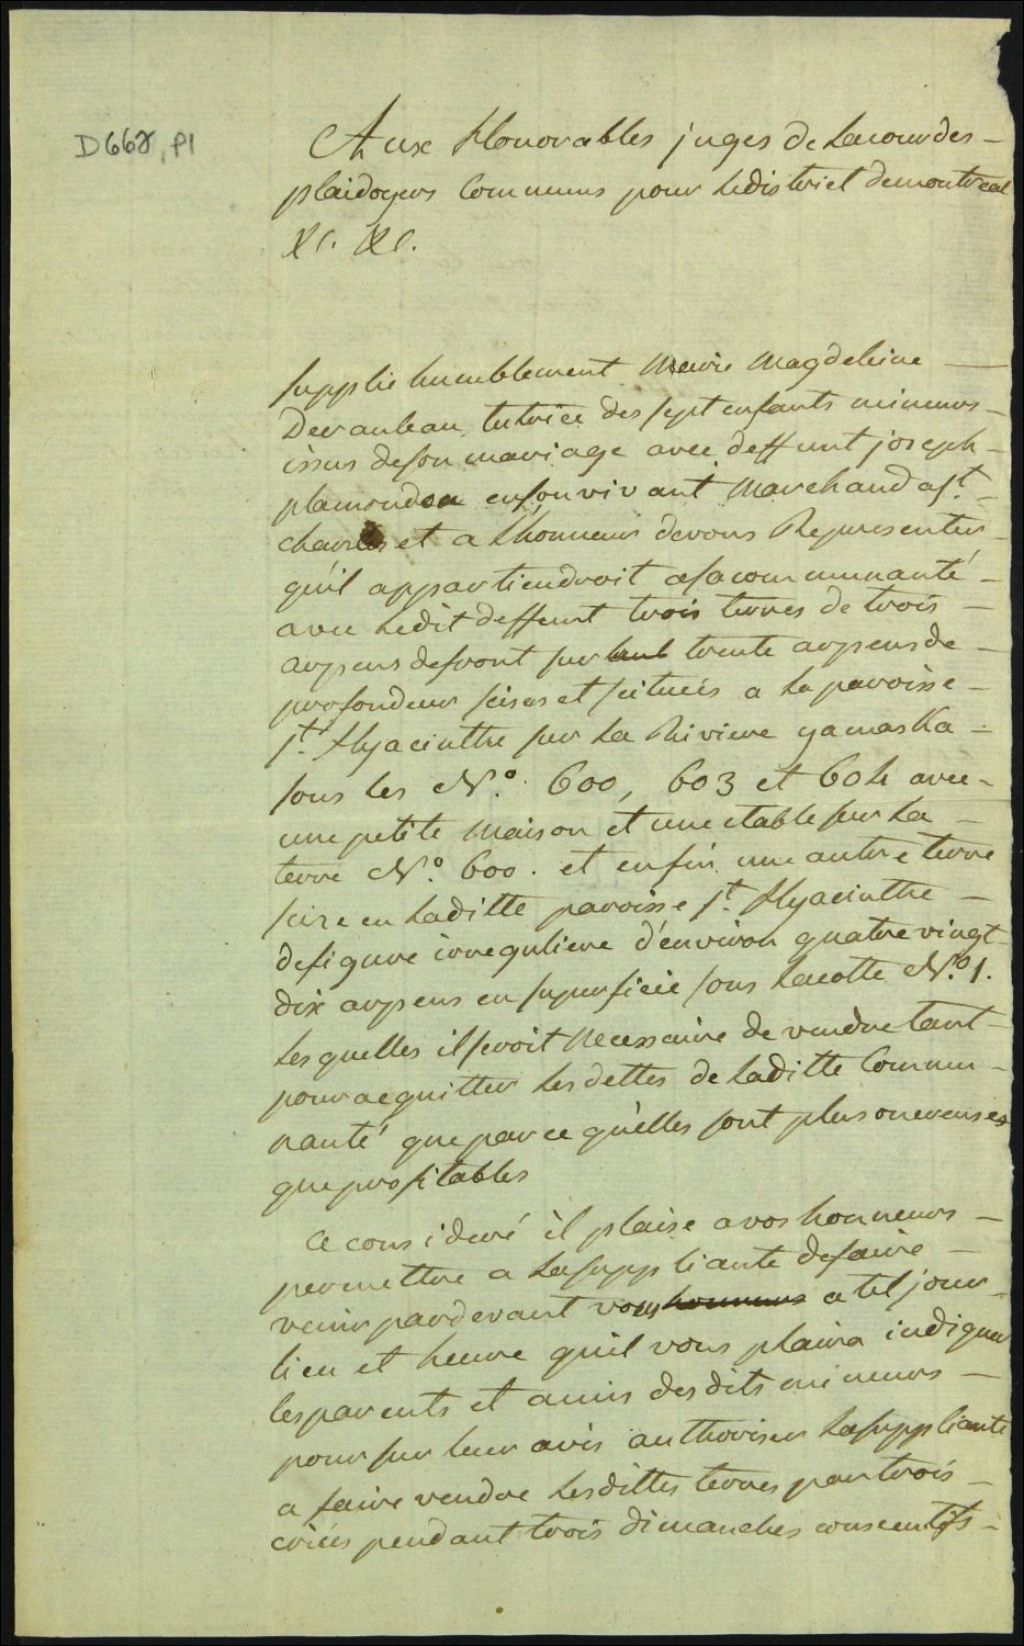 D668, P1
Aux Honorables juges de Lacour des
plaidoyers Communs pour Ledistrict demontreal
&c. &c.
supplie humblement Marie Magdeleine
Devauleau tutrice des sept enfants mineurs
issus deson mariage avec deffunt joseph
plamondon ensonvivant Marchand a st.
charles et a L'honneur devous Representer
qu'il appartiendroit asacommunauté
avec Ledit deffunt trois terres de trois
arpens defront sur trente arpens de
profondeur sises et scituées a La paroisse
st. Hyacinthe sur La Riviere yamaska
sous les No. 600, 603 et 604 avec
une petite Maison et une etable sur La
terre No. 600. et enfin une autre terre
sise en Laditte paroisse st. Hyacinthe
defigure irreguliere d'environ quatre vingt
dix arpens en superficie sous Lacotte No. 1.
Lesquelles il seroit Necessaire de vendre tant
pour acquitter Les dettes de Laditte Commu
nauté que parce qu'elles sont plus onereuses
que profitables
Ce consideré il plaise a vos honneurs
permettre a Lasuppliante defaire
venir pardevant vous honneurs a tel jour
lieu et heure quil vous plaira indiquer
les parents et amis desdits mineurs
pour sur leur avis authoriser Lasuppliante
a faire vendre Lesdittes terres par trois
criées pendant trois dimanches consecutifs